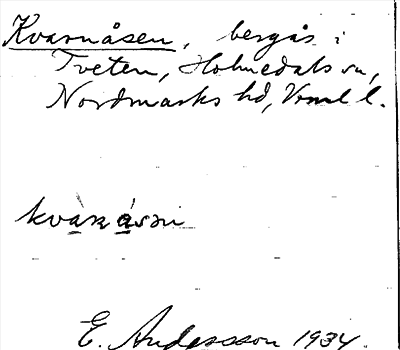 Kvarnåsen, bergås i
Tveten, Holmedals sn,
Nordmarks hd, Vrml l.
kvànåsn
E. Andersson 1934.